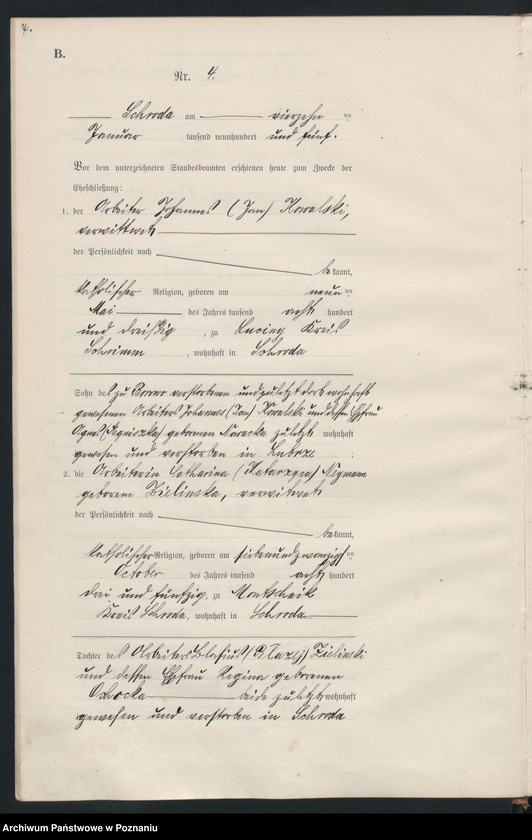 4.
B.
Nr. 4.
Schroda am vierzehn ten
Januar tausend neunhundert und fünf.
Vor dem unterzeichneten Standesbeamten erschienen heute zum Zwecke der
Eheschließung:
1. der Arbeiter Johannes (Jan) Kowalski,
verwittwet
der Persönlichkeit nach
bekannt,
katholischer Religion, geboren am neun ten
Mai des Jahres tausend acht hundert
und dreißig, zu Kreis
Schrimm, wohnhaft in Schroda
Sohn des zu verstorbenen und zuletzt dort wohnhaft
gewesenen Arbeiters Johannes (Jan) Kowalski und dessen Ehefrau
Agnes (Agnieszka) geborenen zuletzt wohnhaft
gewesen und verstorben in
2. die Arbeiterin Catharina (Katarzyna)
geborene Zielinska, verwitwet
der Persönlichkeit nach
bekannt,
katholischer Religion, geboren am siebenundzwanzigsten
October des Jahres tausend acht hundert
drei und fünfzig, zu
Kreis Schroda, wohnhaft in Schroda
Tochter des Arbeiters Blasius (Blazej) Zielinski
und dessen Ehefrau Regina geborenen
beide zuletzt wohnhaft
gewesen und verstorben in Schroda
Archiwum Państwowe w Poznaniu